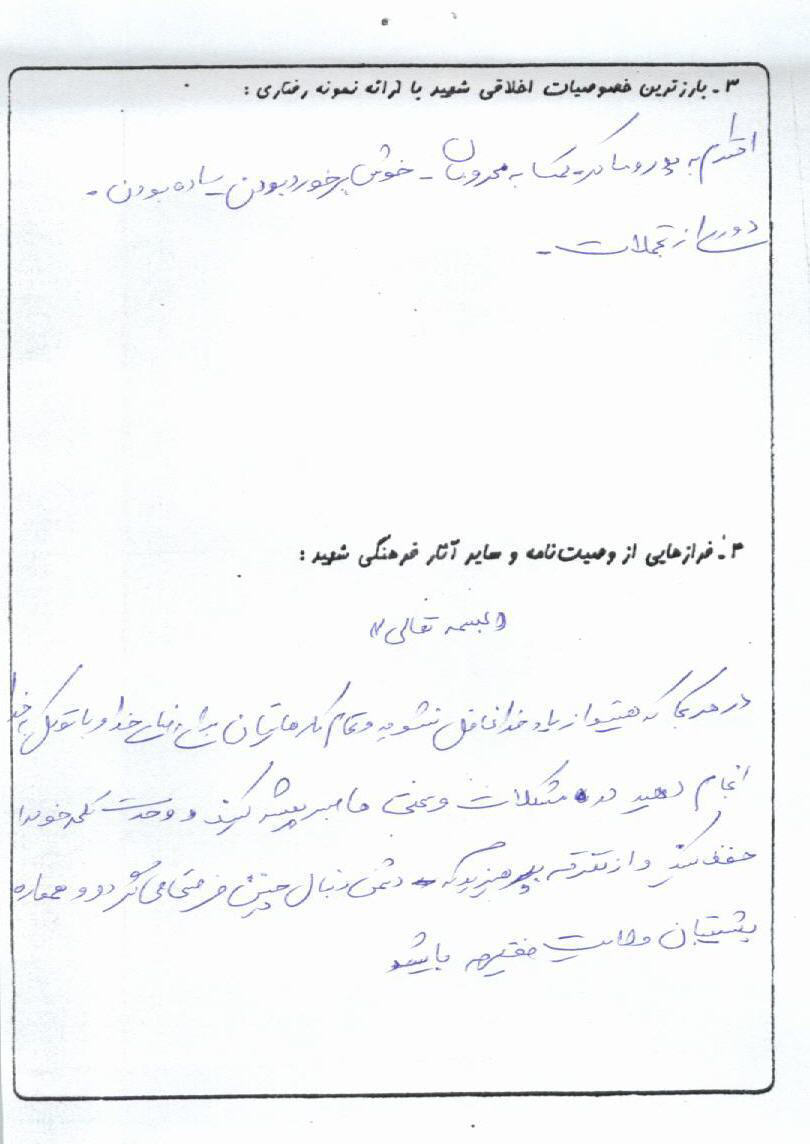 ۳ـ بارزترین خصوصیات اخلاقی شهید با ارائه نمونه رفتاری :
احترام به پدر و مادر ـ کمک به محرومان ـ خوش برخورد بودن ـ ساده بودن ـ
دوری از تجملات ـ
۴ـ فرازهایی از وصیت‌نامه و سایر آثار فرهنگی شهید :
«بسمه تعالی»
در هر کجا که هستید از یاد خدا غافل نشوید و تمام کارهایتان برای رضای خدا و با توکل به خدا
انجام دهید در مشکلات و سختی ها صبر پیشه کنید و وحدت کلمه خود را
حفظ کنید و از تفرقه بپرهیزید که دشمن دنبال چنین فرصتی می گردد و همواره
پشتیبان ولایت فقیه باشید